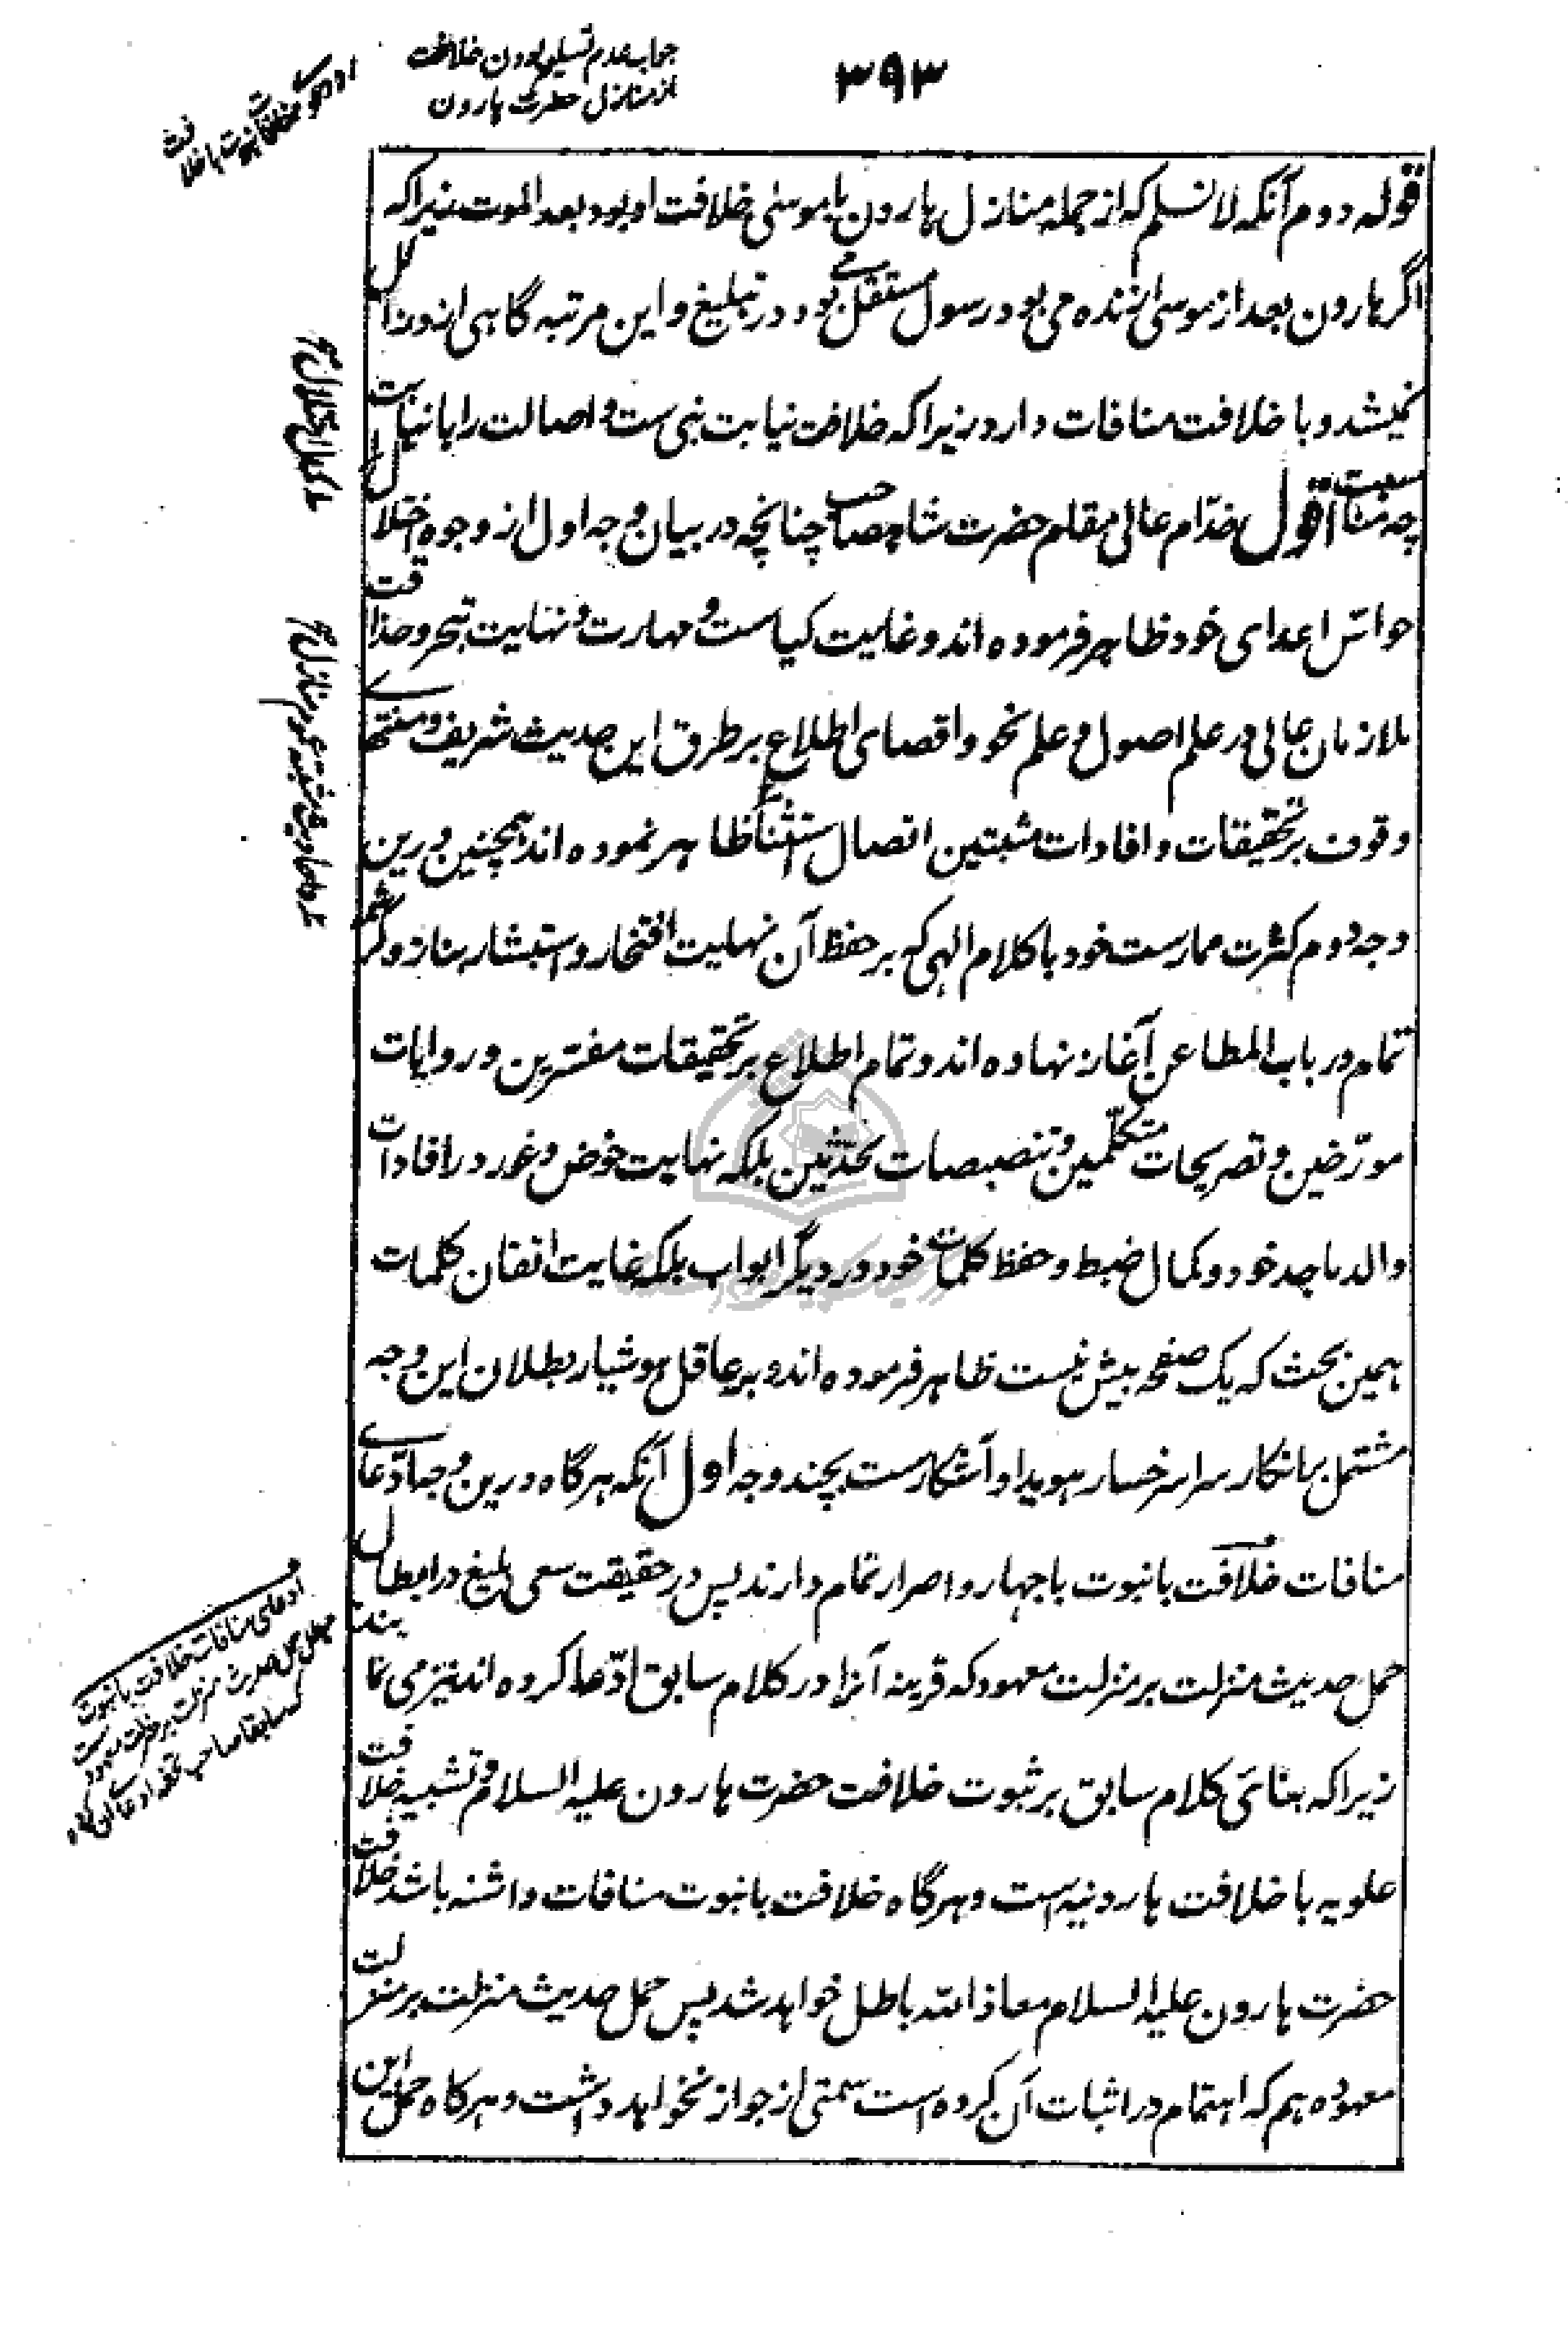 ۳۹۳
جواب عدم تسلیم بودن خلافت
از منازل حضرت هارون
قوله دوم آنکه لا نسلم که از جمله منازل هارون با موسی خلافت او بود بعد الموت زیراکه
اگر هارون بعد از موسی زنده می بود رسول مستقل می بود در تبلیغ و این مرتبه گاهی ازو زائل
نمیشد و با خلافت منافات دارد زیراکه خلافت نیابت نبی ست و اصالت را با نیابت
چه مناسبت اقول خدّام عالی مقام حضرت شاهصاحب چنانچه در بیان وجه اول از وجوه اختلال
حواس اعدای خود ظاهر فرموده اند و غایت کیاست و مهارت و نهایت تبحر و حذاقت
ملازمان عالی در علم اصول و علم نحو و اقصای اطلاع بر طرق این حدیث شریف و منتهای
وقوف بر تحقیقات و افادات مثبتین اتصال استثنا ظاهر نموده اند همچنین درین
وجه دوم کثرت ممارست خود با کلام الهی که بر حفظ آن نهایت افتخار و استبشار بناز و کرشمه
تمام در باب المطاعن آغاز نهاده اند و تمام اطلاع بر تحقیقات مفسّرین و روایات
مورّخین و تصریحات متکلّمین و تنصیصات محدّثین بلکه نهایت خوض و غور در افادات
والد ماجد خود و کمال ضبط و حفظ کلمات خود در دیگر ابواب بلکه غایت اتقان کلمات
همین بحث که یک صفحه بیش نیست ظاهر فرموده اند و بر عاقل هوشیار بطلان این وجه
مشتمل بر انکار سراسر خسار هویدا و آشکارست بچند وجه اول آنکه هرگاه درین وجه ادّعای
منافات خلافت با نبوت باجهار و اصرار تمام دارند پس در حقیقت سعی بلیغ در ابطال
حمل حدیث منزلت بر منزلت معهود که قرینه آنرا در کلام سابق ادّعا کرده اند نیز می نمایند
زیراکه بنای کلام سابق بر ثبوت خلافت حضرت هارون علیه السلام و تشبیه خلافت
علویه با خلافت هارونیه است و هرگاه خلافت با نبوت منافات داشته باشد خلافت
حضرت هارون علیه السلام معاذ الله باطل خواهد شد پس حمل حدیث منزلت بر منزلت
معهوده هم که اهتمام در اثبات آن کرده است سمتی از جواز نخواهد داشت و هرگاه حمل این
ادعای منافات خلافت با نبوت
مبطل حمل حدیث منزلت بر منزلت معهود ست
که سابقا صاحب تحفه ادعای آن کرده